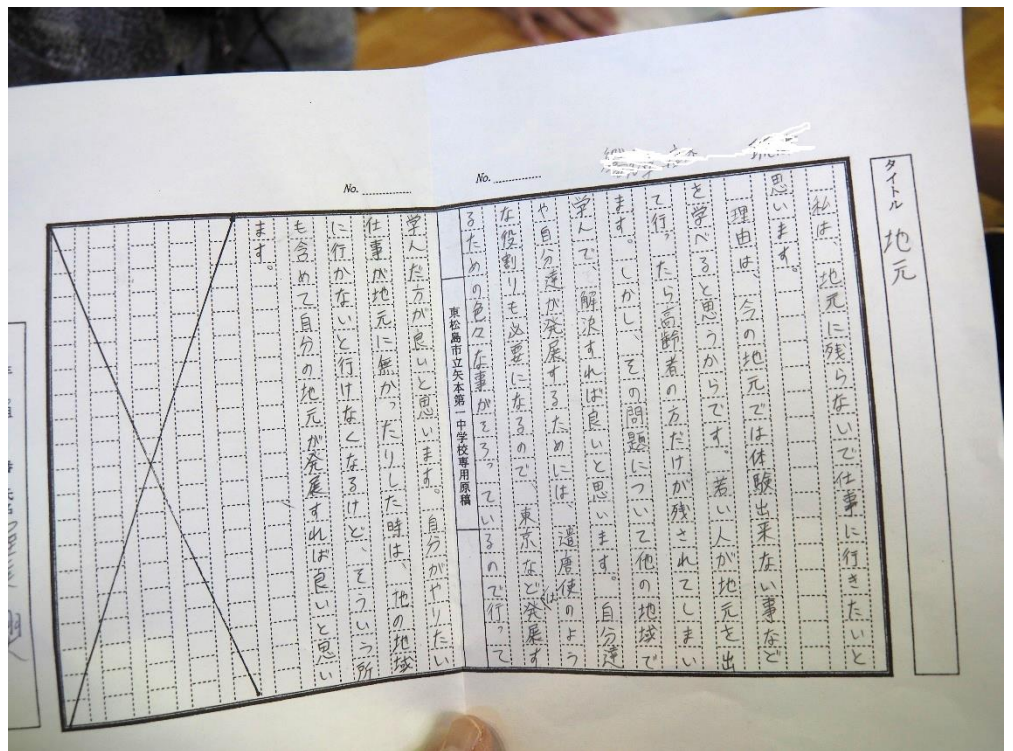 タイトル 地元
私は、地元に残らないで仕事に行きたいと
思います。
理由は、今の地元では体験出来ない事など
を学べると思うからです。若い人が地元を出
て行ったら高齢者の方だけが残されてしまい
ます。しかし、その問題について他の地域で
学んで、解決すれば良いと思います。自分達
や自分達が発展するためには、遣唐使のよう
な役割りも必要になるので、東京など発展す
るための色々な事がそろっているので行って
東松島市立矢本第一中学校専用原稿
No.
No.
学んだ方が良いと思います。自分がやりたい
仕事が地元に無かったりした時は、他の地域
に行かないと行けなくなるけど、そういう所
も含めて自分の地元が発展すれば良いと思い
ます。